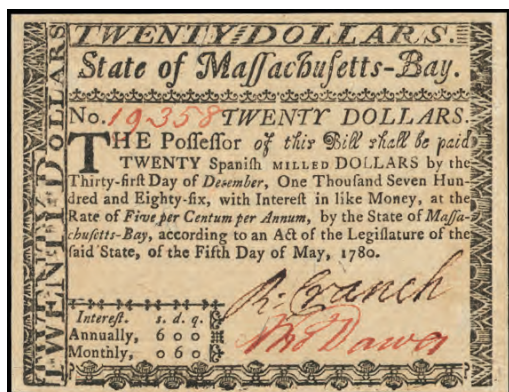 TWENTY DOLLARS.
State of Maſſachuſetts-Bay.
No. 19358 TWENTY DOLLARS.
THE Poſſeſſor of this Bill shall be paid
TWENTY Spaniſh MILLED DOLLARS by the
Thirty-firſt Day of December, One Thouſand Seven Hun-
dred and Eighty-ſix, with Intereſt in like Money, at the
Rate of Five per Centum per Annum, by the State of Maſſa-
chuſetts-Bay, according to an Act of the Legiſlature of the
ſaid State, of the Fifth Day of May, 1780.
R. Cranch
Thos Dawes
Intereſt. s. d. q.
Annually, 6 0 0
Monthly, 0 6 0
TWENTY DOLLARS